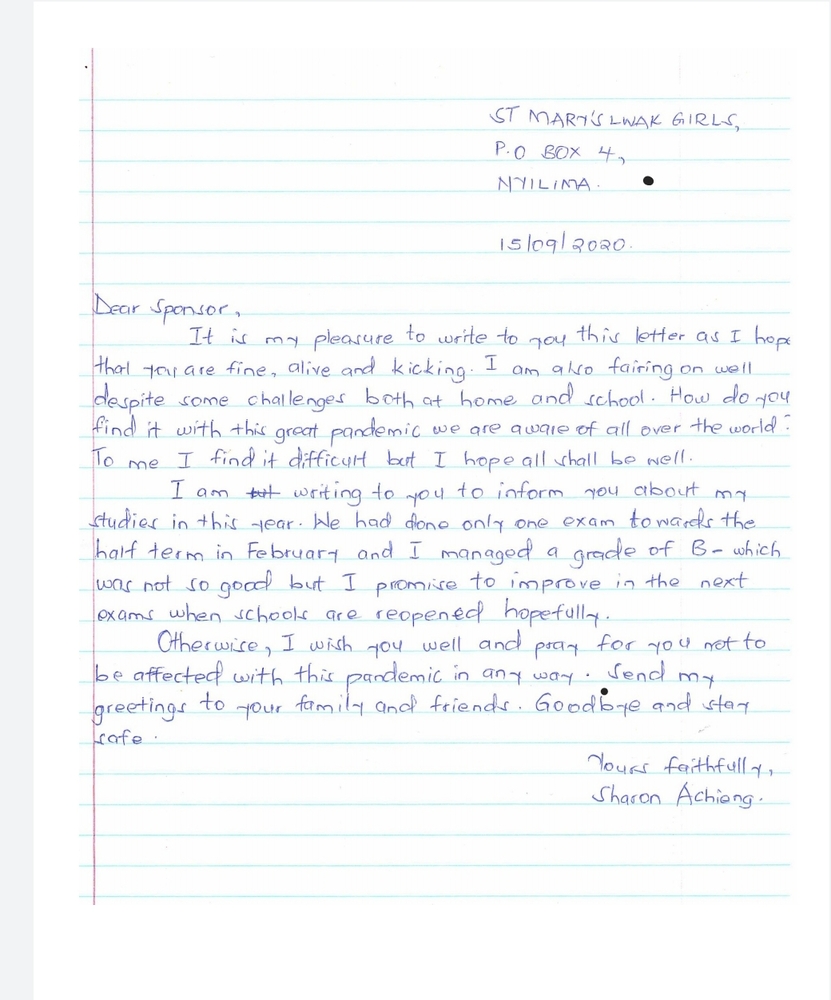 ST MARY'S LWAK GIRLS,
P.O BOX 4,
NYILIMA.
15/09/2020.
Dear Sponsor,
It is my pleasure to write to you this letter as I hope
that you are fine, alive and kicking. I am also fairing on well
despite some challenges both at home and school. How do you
find it with this great pandemic we are aware of all over the world?
To me I find it difficult but I hope all shall be well.
I am writing to you to inform you about my
studies in this year. We had done only one exam towards the
half term in February and I managed a grade of B- which
was not so good but I promise to improve in the next
exams when schools are reopened hopefully.
Otherwise, I wish you well and pray for you not to
be affected with this pandemic in any way. Send my
greetings to your family and friends. Goodbye and stay
safe.
Yours faithfully,
Sharon Achieng.